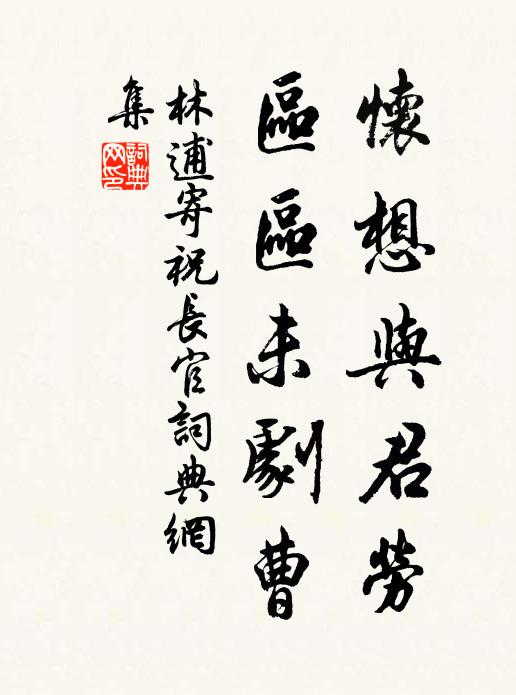 懷想與君勞
區區未劇曹
林逋寄祝長官詞典網
集
詞典
网印